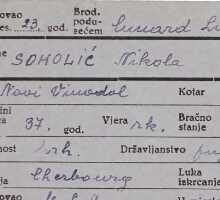 ovao
es. 23. god. Brod. podu- zećem Cunard Li
me SOHOLIĆ Nikola
Novi Vinodol Kotar
ini 37. god. Vjera rk. Bračno stanje
nost Državljanstvo
ja Cherbourg Luka iskrcanja
ovao